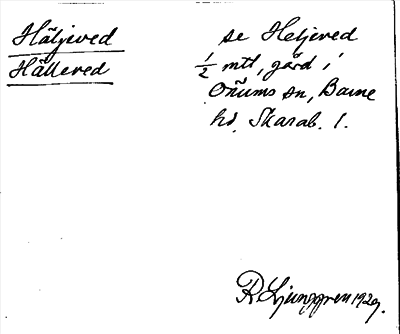 Häljeved se Heljeved
Hälleved ½ mtl, gård i
Önums sn, Barne
hd, Skarab. l.
R Ljunggren 1929.